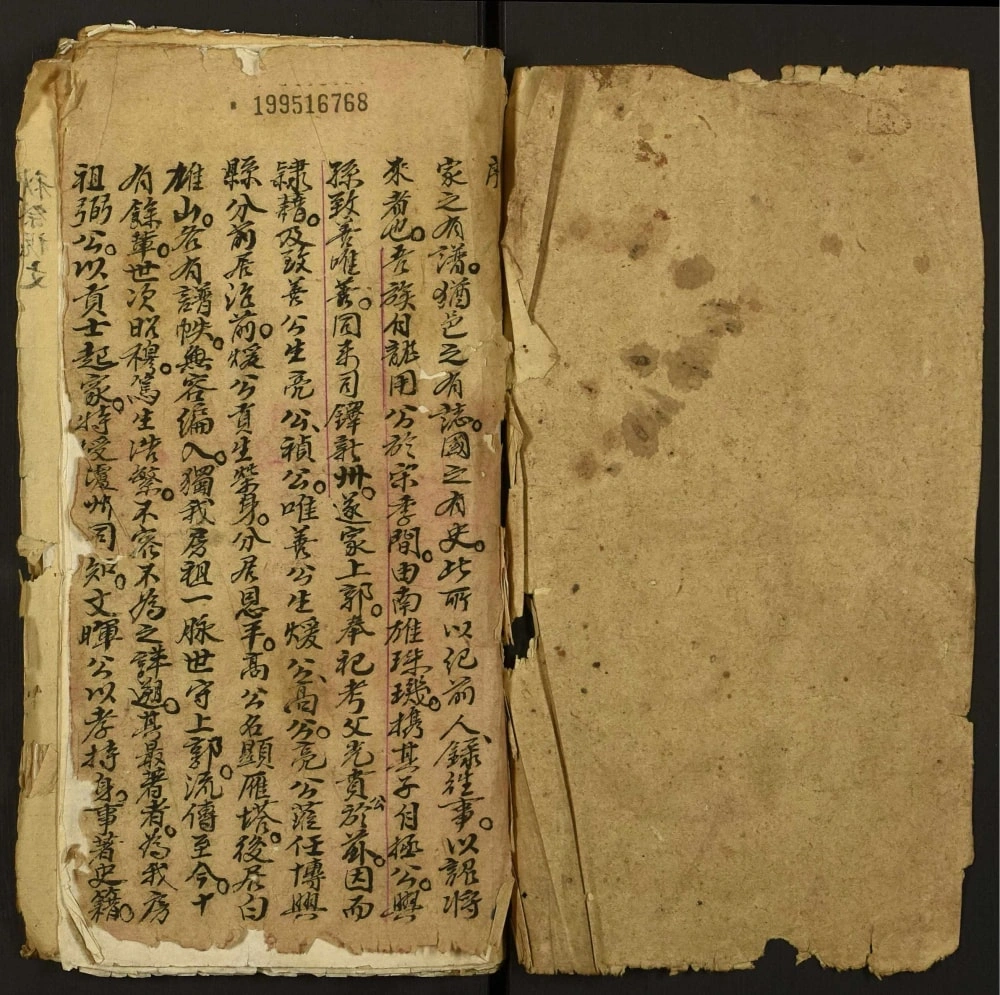 199516768
序
家之有譜。猶邑之有誌。國之有史。此所以紀前人、錄往事。以詔將
來者也。吾族自龍用公於宋季間。由南雄珠璣。携其子自極公。與
孫致善唯善。同來司鐸新州。遂家上郭。奉祀考父光賁公於茲。因而
隷籍。及致善公生亮公、禎公。唯善公生煖公、高公。亮公蔭任博興
縣分前居治前。煖公貢生榮身。分居恩平。高公名顯雁塔。後居白
雄山。各有譜帙。無容編入。獨我房祖一脉世守上郭。流傳至今。十
有餘輩。世次昭穆。篤生浩繁。不容不為之詳遡。其最著者。為我房
祖弼公。以貢士起家。特受瀘州同知。文暉公以孝持身。事著史籍。
秋祭
文